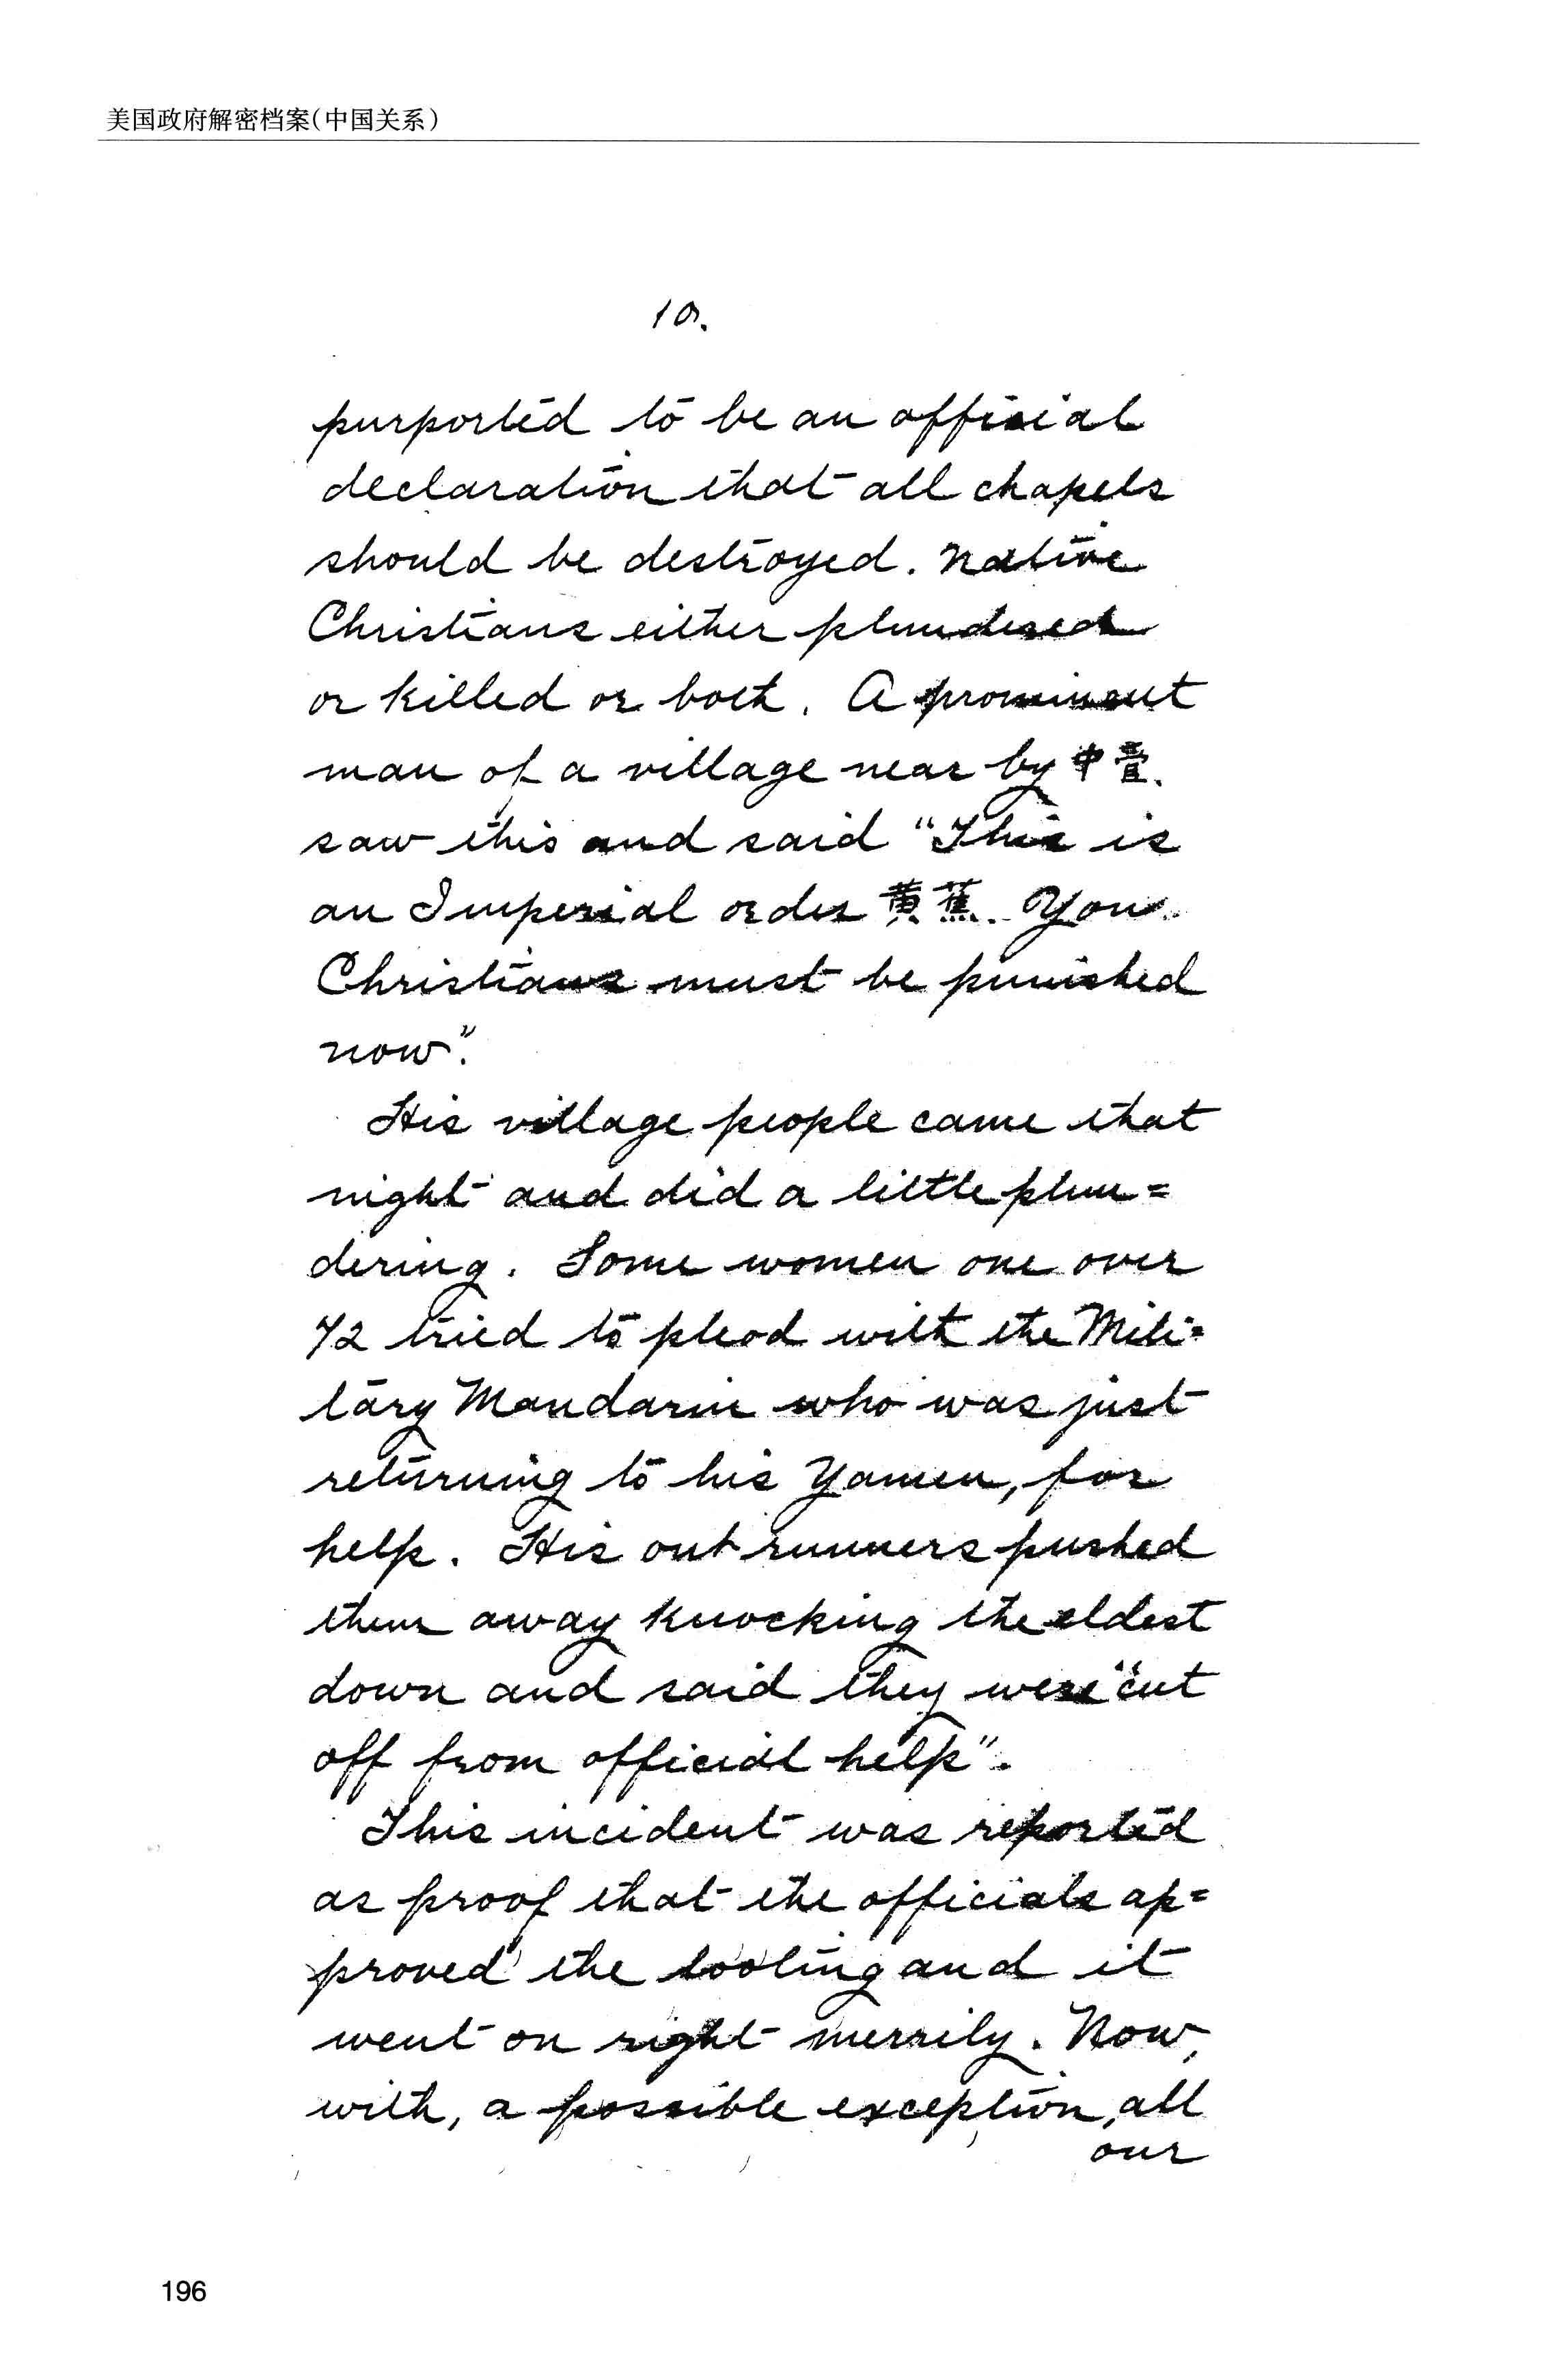 美国政府解密档案(中国关系)
10.
purported to be an official
declaration that all chapels
should be destroyed. Native
Christians either plundered
or killed or both. A prominent
man of a village near by 中
saw this and said "This is
an Imperial order 黄蕉. You
Christians must be punished
now".
His village people came that
night and did a little plun=
dering. Some women one over
72 tried to plead with the Mili=
tary Mandarin who was just
returning to his Yamen, for
help. His out runners pushed
them away knocking the eldest
down and said they were "cut
off from official help".
This incident was reported
as proof that the officials ap=
proved the looting and it
went on right merrily. Now,
with, a possible exception, all
our
196